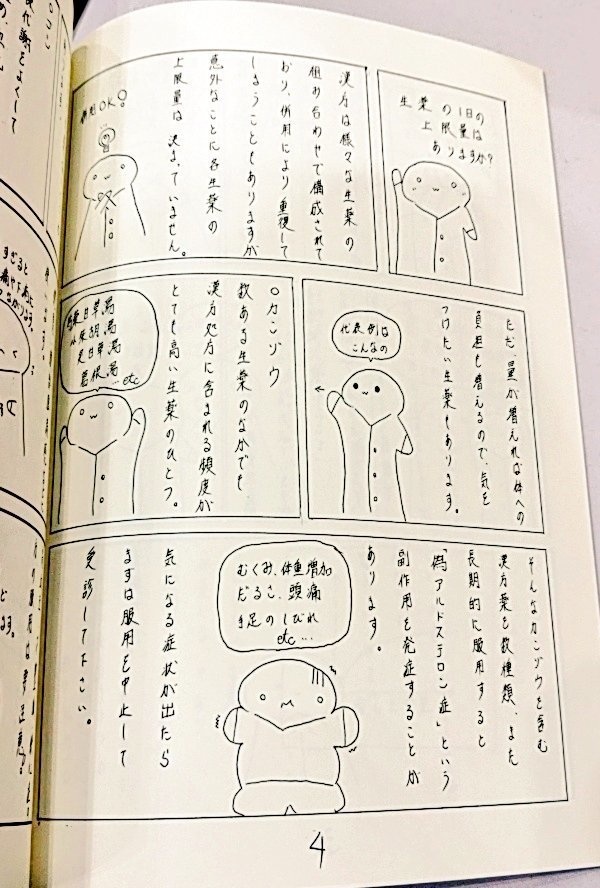 生薬の1日の
上限量は
ありますか?
漢方は様々な生薬の
組み合わせで構成されて
おり、併用により重複して
しまうこともありますが
意外なことに各生薬の
上限量は決まっていません。
併用OK!
ただ量が増えれば体への
負担も増えるので、気を
つけたい生薬もあります。
代表例は
こんなの
○カンゾウ
数ある生薬のなかでも
漢方処方に含まれる頻度が
とても高い生薬のひとつ。
葛根湯
…etc
そんなカンゾウを含む
漢方薬を数種類、また
長期的に服用すると
「偽アルドステロン症」という
副作用を発症することが
あります。
むくみ、体重増加
だるさ、頭痛
手足のしびれ
etc…
気になる症状が出たら
まずは服用を中止して
受診して下さい。
4